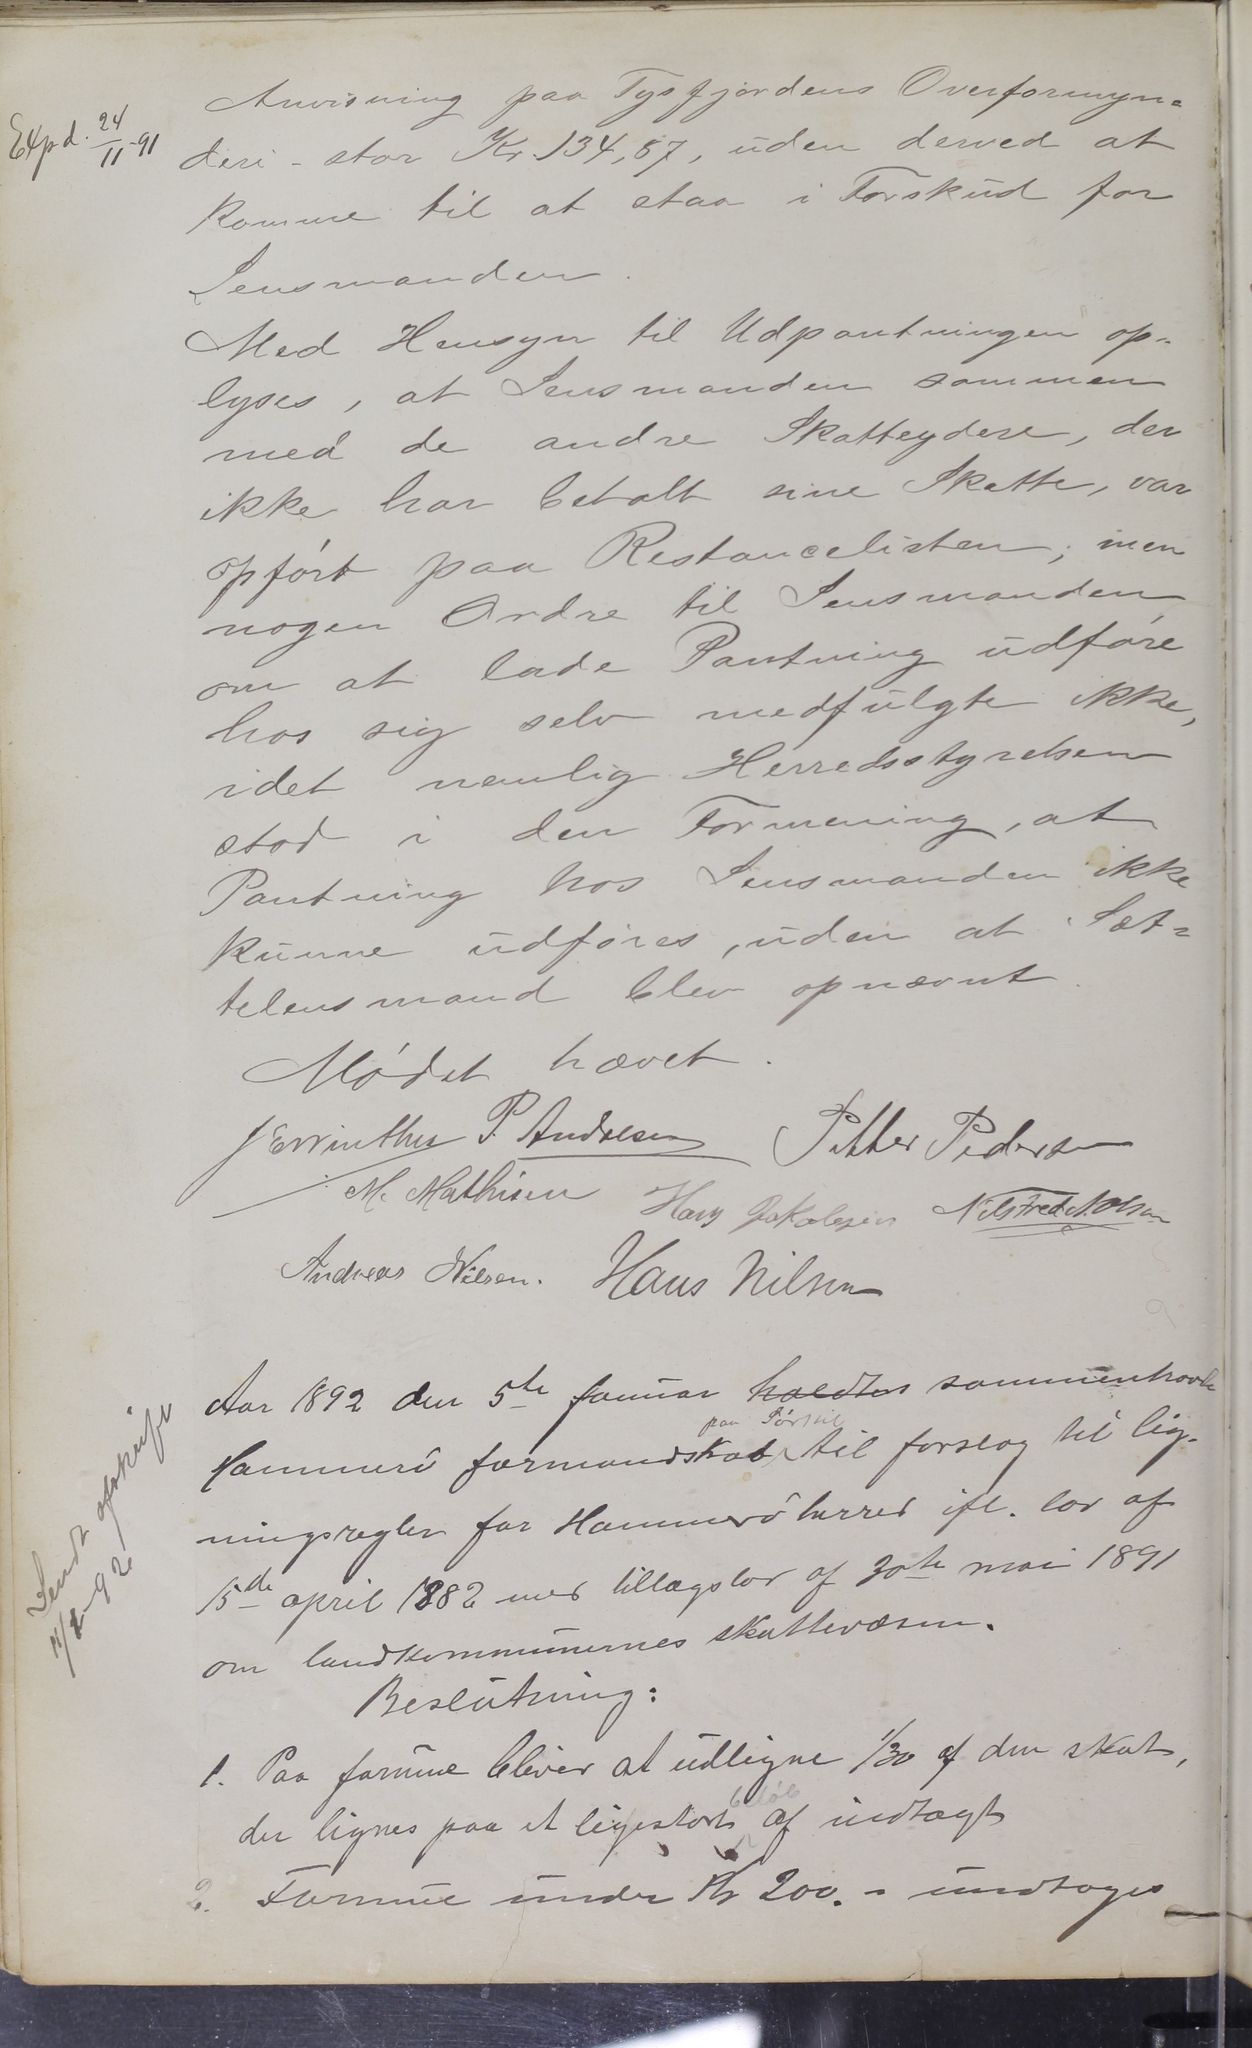 Anvisning paa Tysfjordens Overformyn=
Expd. 24/11-91
deri - stor Kr. 134,87, uden derved at
komme til at staa i Forskud for
Lensmanden.
Med Hensyn til Udpantningen op-
lyses, at Lensmanden sammen
med de andre Skatteydere, der
ikke har betalt sine Skatte, var
opført paa Restancelisten; men
nogen Ordre til Lensmanden
om at lade Pantning udføre
hos sig selv medfulgte ikke,
idet nemlig Herredsstyrelsen
stod i den Formening, at
Pantning hos Lensmanden ikke
kunne udføres, uden at Sæt=
telensmand blev opnævnt.
Mødet hævet.
P. Andresen Petter Pedersen
M. Mathisen Hans Jakobsen Nils Fred. Nilsen
Andreas Nilsen. Hans Nilsen
Aar 1892 den 5te januar holdtes sammentraadte
paa Førskil
Hammerø formandskab til forslag til lig-
ningsregler for Hammerø herred ifl. lov af
15de april 1882 med tillægslov af 30te mai 1891
om landkommunernes skattevæsen.
Sendt afskrift
-92
Beslutning:
1. Paa formue bliver at udligne 1/30 af den skat,
beløb
der lignes paa et ligestort af indtægt
2. Formue under Kr 200.- undtages